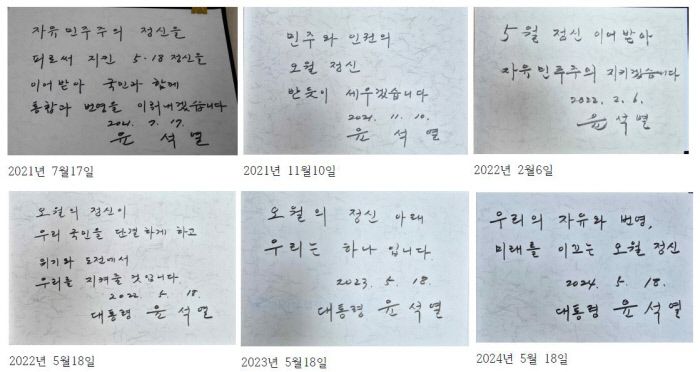 자유민주주의 정신을
피로써 지킨 5·18정신을
이어받아 국민과 함께
통합과 번영을 이뤄내겠습니다
2021. 7. 17.
윤석열
2021년 7월17일
민주와 인권의
오월 정신
반듯이 세우겠습니다
2021. 11. 10.
윤석열
2021년 11월10일
5월 정신 이어받아
자유민주주의 지키겠습니다
2022. 2. 6.
윤석열
2022년 2월6일
오월의 정신이
우리 국민을 단결하게 하고
위기와 도전에서
우리를 지켜줄 것입니다
2022. 5. 18.
대통령 윤석열
2022년 5월18일
오월의 정신 아래
우리는 하나입니다
2023. 5. 18.
대통령 윤석열
2023년 5월18일
우리의 자유와 번영,
미래를 이끄는 오월 정신
2024. 5. 18.
대통령 윤석열
2024년 5월 18일